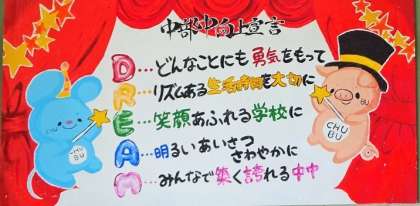 中部中向上宣言
D…どんなことにも勇気をもって
R…リズムある生活時間を大切に
E…笑顔あふれる学校に
A…明るいあいさつ
さわやかに
M…みんなで築く誇れる中中
CHUBU
CHUBU